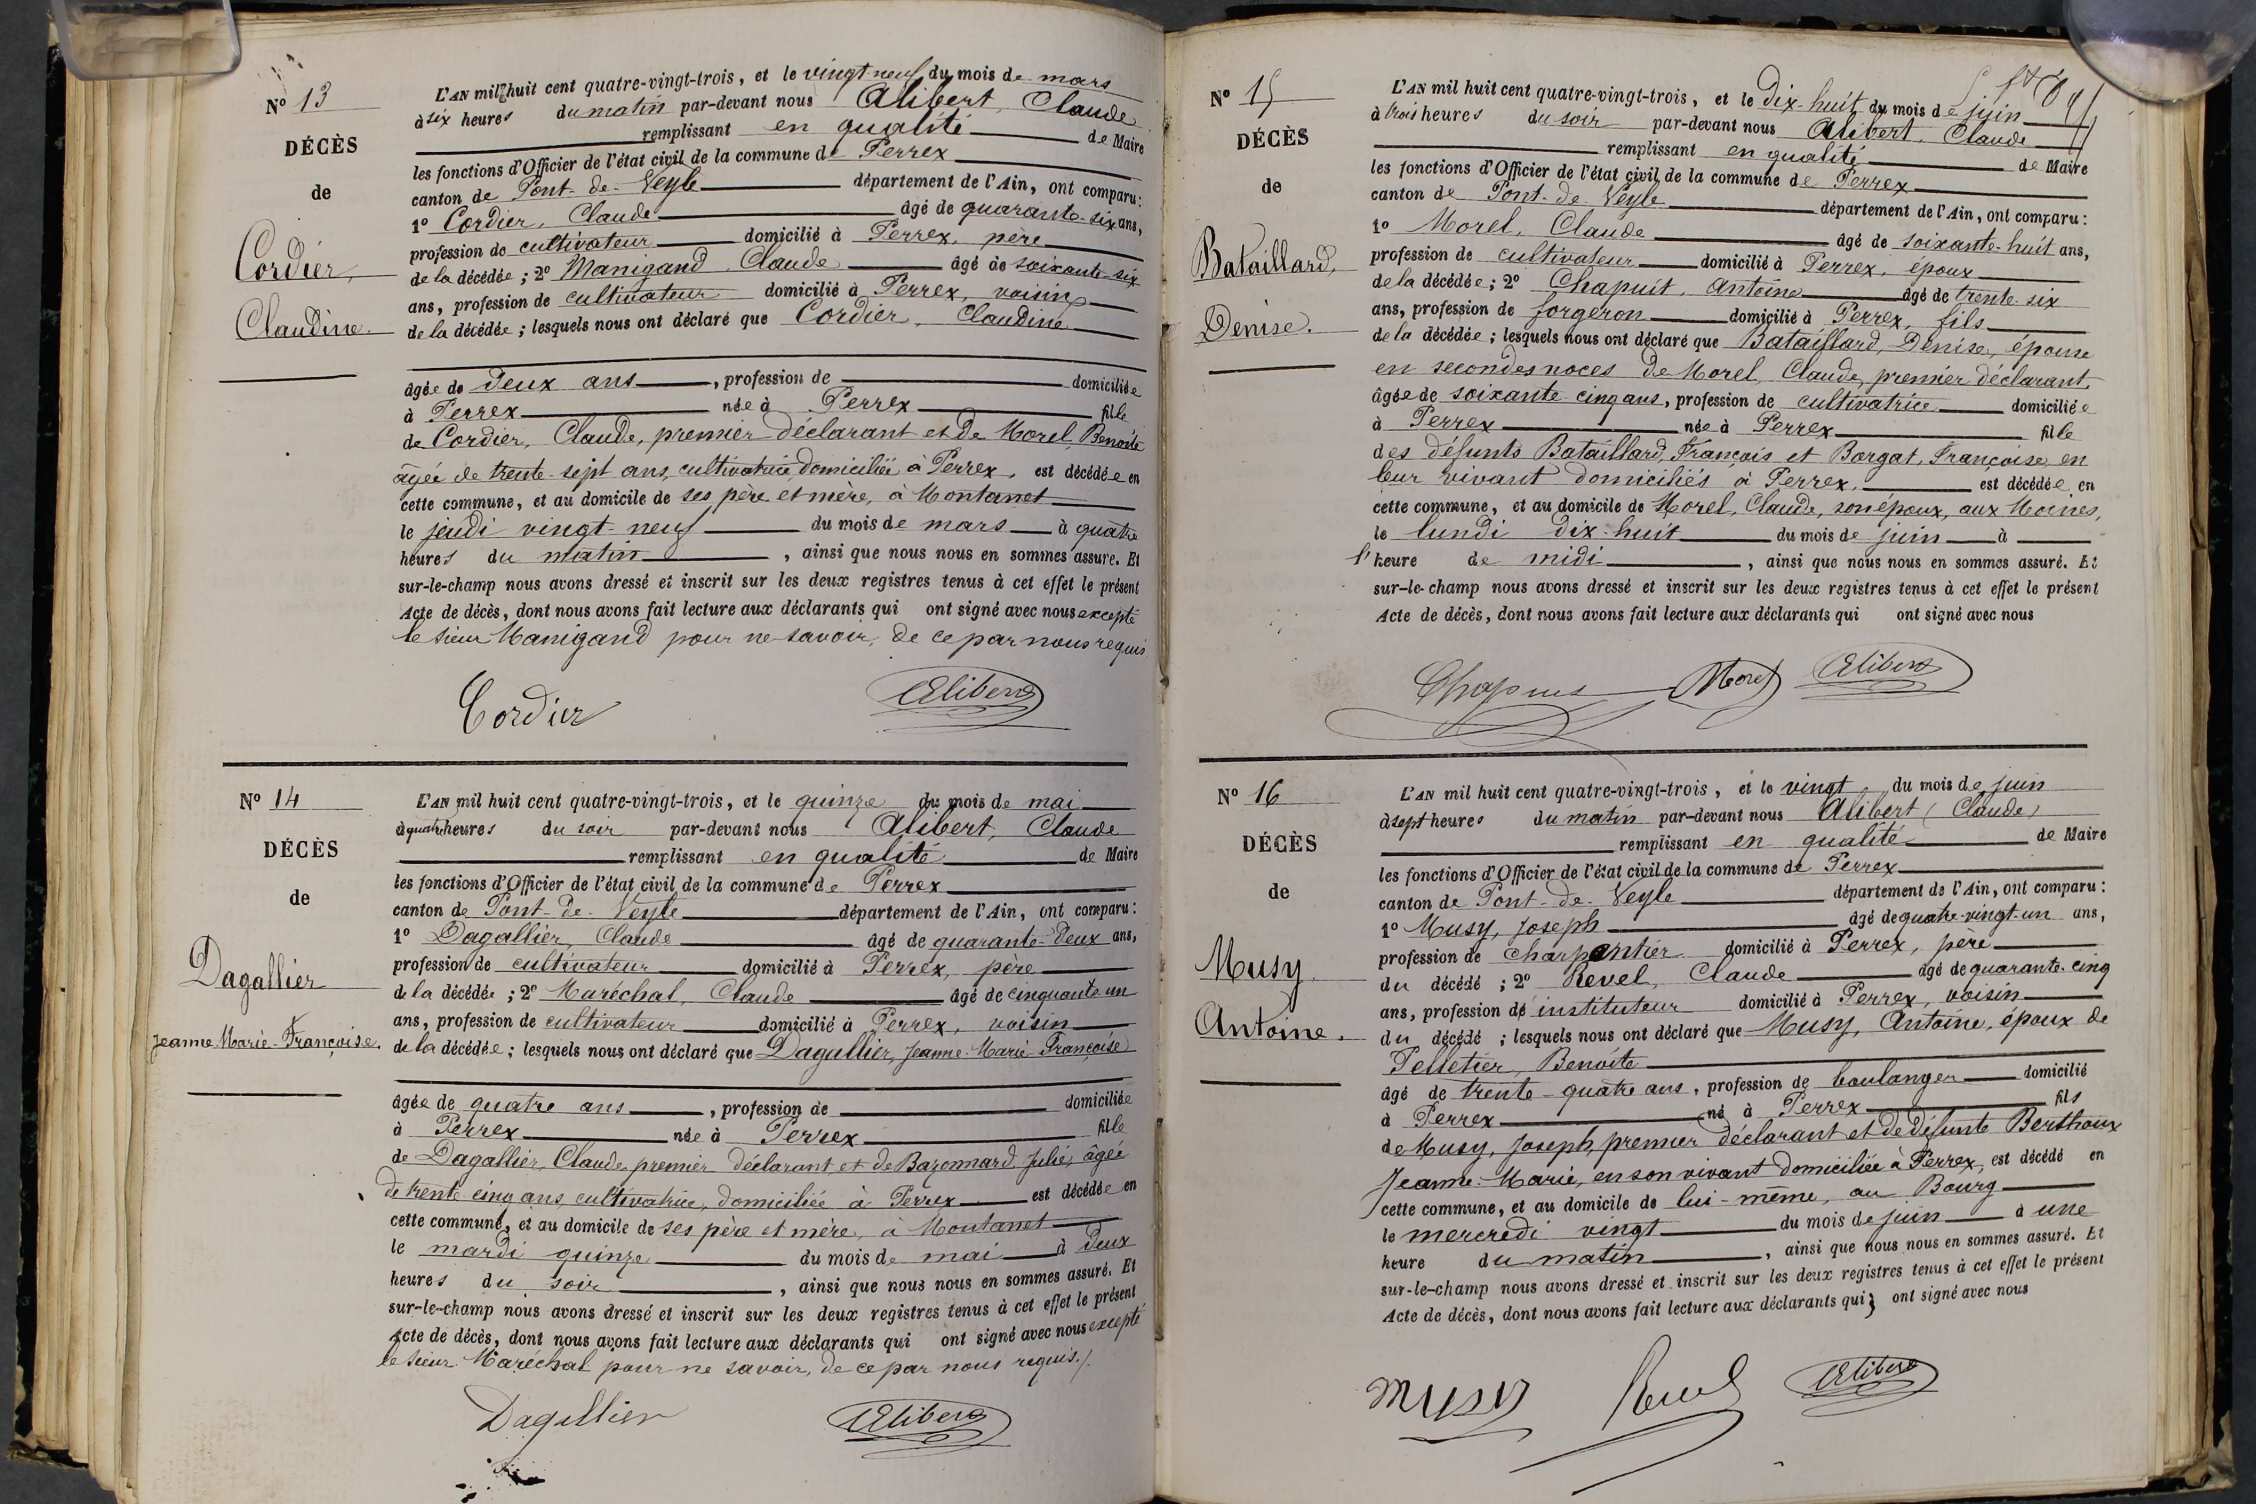 Nº 13
DÉCÈS
de
Cordier,
Claudine.
L'AN mil huit cent quatre-vingt-trois, et le vingt-neuf du mois de mars
à six heures du matin par-devant nous Alibert, Claude
remplissant en qualité de Maire
les fonctions d'Officier de l'état civil de la commune de Perrex
canton de Pont-de-Veyle département de l'Ain, ont comparu:
1º Cordier, Claude âgé de quarante-six ans,
profession de cultivateur domicilié à Perrex, père
de la décédée; 2º Manigand, Claude âgé de soixante-six
ans, profession de cultivateur domicilié à Perrex, voisin
de la décédée; lesquels nous ont déclaré que Cordier, Claudine
âgée de deux ans, profession de domiciliée
à Perrex née à Perrex fille
de Cordier, Claude, premier déclarant et de Morel, Benoite
âgée de trente-sept ans, cultivatrice, domiciliée à Perrex, est décédée en
cette commune, et au domicile de ses père et mère, à Montanet
le jeudi vingt-neuf du mois de mars à quatre
heures du matin, ainsi que nous nous en sommes assuré. Et
sur-le-champ nous avons dressé et inscrit sur les deux registres tenus à cet effet le présent
Acte de décès, dont nous avons fait lecture aux déclarants qui ont signé avec nous excepté
le sieur Manigand pour ne savoir, de ce par nous requis
Cordier Alibert
Nº 14
DÉCÈS
de
Dagallier
Jeanne-Marie-Françoise.
L'AN mil huit cent quatre-vingt-trois, et le quinze du mois de mai
à quatre heures du soir par-devant nous Alibert, Claude
remplissant en qualité de Maire
les fonctions d'Officier de l'état civil de la commune de Perrex
canton de Pont-de-Veyle département de l'Ain, ont comparu:
1º Dagallier, Claude âgé de quarante-deux ans,
profession de cultivateur domicilié à Perrex, père
de la décédée; 2º Maréchal, Claude âgé de cinquante un
ans, profession de cultivateur domicilié à Perrex, voisin
de la décédée; lesquels nous ont déclaré que Dagallier, Jeanne-Marie-Françoise
âgée de quatre ans, profession de domiciliée
à Perrex née à Perrex fille
de Dagallier, Claude, premier déclarant et de Bazonnard, Julie, âgée
de trente-cinq ans, cultivatrice, domiciliée à Perrex est décédée en
cette commune, et au domicile de ses père et mère, à Montanet
le mardi quinze du mois de mai à deux
heures du soir, ainsi que nous nous en sommes assuré. Et
sur-le-champ nous avons dressé et inscrit sur les deux registres tenus à cet effet le présent
Acte de décès, dont nous avons fait lecture aux déclarants qui ont signé avec nous excepté
le sieur Maréchal pour ne savoir, de ce par nous requis./.
Dagallier Alibert
Nº 15
DÉCÈS
de
Bataillard,
Denise.
L'AN mil huit cent quatre-vingt-trois, et le dix-huit du mois de juin
à trois heures du soir par-devant nous Alibert, Claude
remplissant en qualité de Maire
les fonctions d'Officier de l'état civil de la commune de Perrex
canton de Pont-de-Veyle département de l'Ain, ont comparu:
1º Morel, Claude âgé de soixante-huit ans,
profession de cultivateur domicilié à Perrex, époux
de la décédée; 2º Chapuit, Antoine âgé de trente-six
ans, profession de forgeron domicilié à Perrex, fils
de la décédée; lesquels nous ont déclaré que Bataillard, Denise, épouse
en secondes noces de Morel, Claude, premier déclarant,
âgée de soixante-cinq ans, profession de cultivatrice domiciliée
à Perrex née à Perrex fille
des défunts Bataillard, François et Borgat, Françoise, en
leur vivant domiciliés à Perrex, est décédée en
cette commune, et au domicile de Morel, Claude, son époux, aux Moines,
le lundi dix-huit du mois de juin à
l'heure de midi, ainsi que nous nous en sommes assuré. Et
sur-le-champ nous avons dressé et inscrit sur les deux registres tenus à cet effet le présent
Acte de décès, dont nous avons fait lecture aux déclarants qui ont signé avec nous
Chapuis Morel Alibert
Nº 16
DÉCÈS
de
Musy
Antoine.
L'AN mil huit cent quatre-vingt-trois, et le vingt du mois de juin
à sept heures du matin par-devant nous Alibert (Claude)
remplissant en qualité de Maire
les fonctions d'Officier de l'état civil de la commune de Perrex
canton de Pont-de-Veyle département de l'Ain, ont comparu:
1º Musy, Joseph âgé de quatre-vingt-un ans,
profession de charpentier domicilié à Perrex, père
du décédé; 2º Revel, Claude âgé de quarante-cinq
ans, profession de instituteur domicilié à Perrex, voisin
du décédé; lesquels nous ont déclaré que Musy, Antoine, époux de
Pelletier, Benoite
âgé de trente-quatre ans, profession de boulanger domicilié
à Perrex né à Perrex fils
de Musy, Joseph, premier déclarant et de défunte Berthoux
Jeanne-Marie, en son vivant domiciliée à Perrex, est décédé en
cette commune, et au domicile de lui-même, au Bourg
le mercredi vingt du mois de juin à une
heure du matin, ainsi que nous nous en sommes assuré. Et
sur-le-champ nous avons dressé et inscrit sur les deux registres tenus à cet effet le présent
Acte de décès, dont nous avons fait lecture aux déclarants qui ont signé avec nous
MUSY Revel Alibert